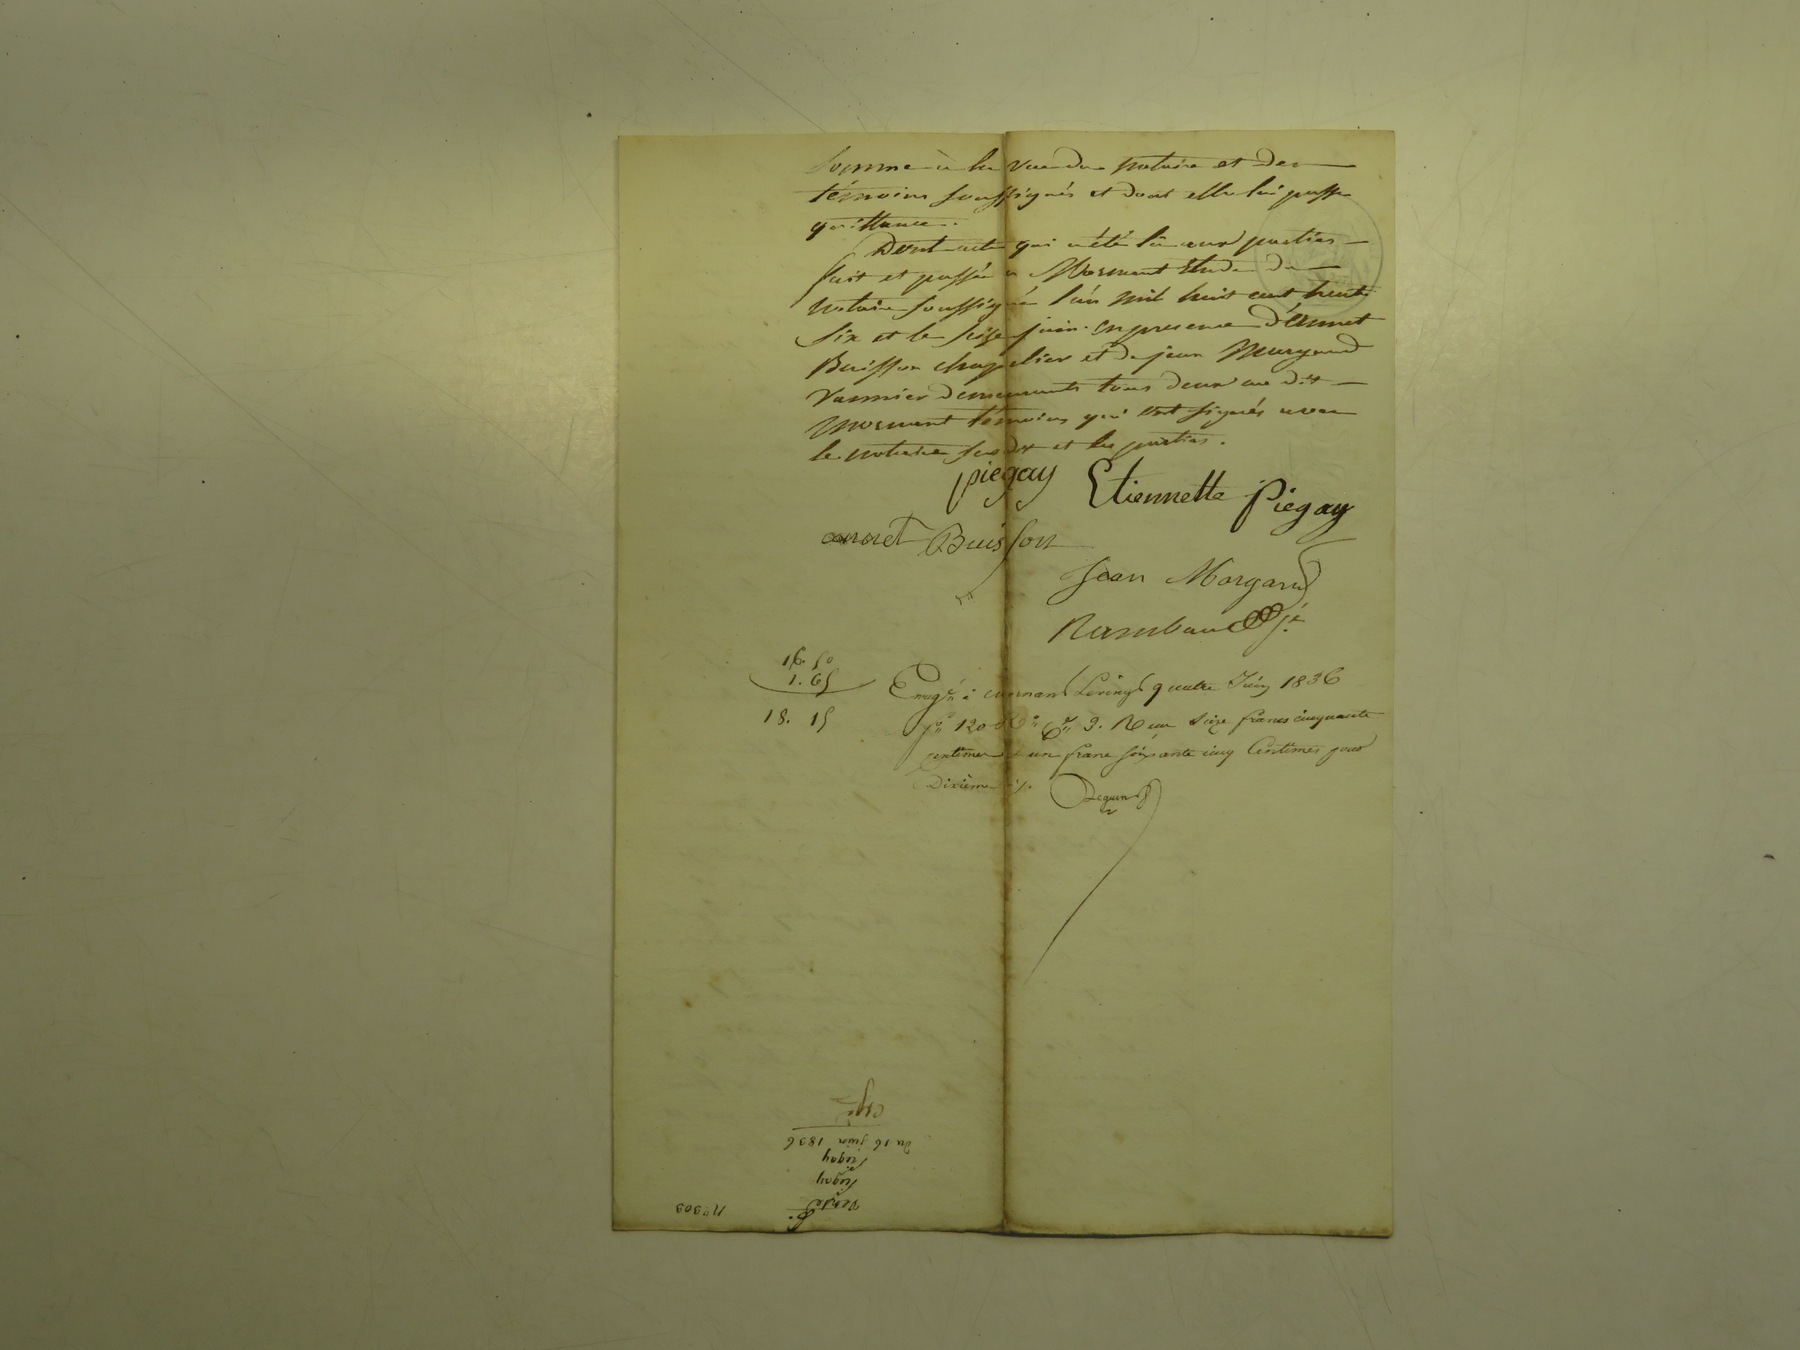 Somme à la vue du notaire et des
témoins soussignés et dont elle lui passe
quittance.
Dont acte qui a été lu aux parties
fait et passé à Mornant Etude du
notaire soussigné l'an mil huit cent trente
six et le seize juin en presence d'Annet
Buisson chapelier et de jean Morgand
Vannier demeurants tous deux au dit
Mornant témoins qui ont signés avec
le notaire susdit et les parties.
piegay Etiennette Piegay
annet Buisson
Jean Morgand
Rambaud
16. 50
1. 65
18. 15
Enregé à Mornant Le vingt quatre Juin 1836
fo 120 Co 3. Reçu Seize francs cinquante
centimes et un franc soixante cinq Centimes pour
Dixième
Du 16 juin 1836
piegay
piegay
Vente
No 303